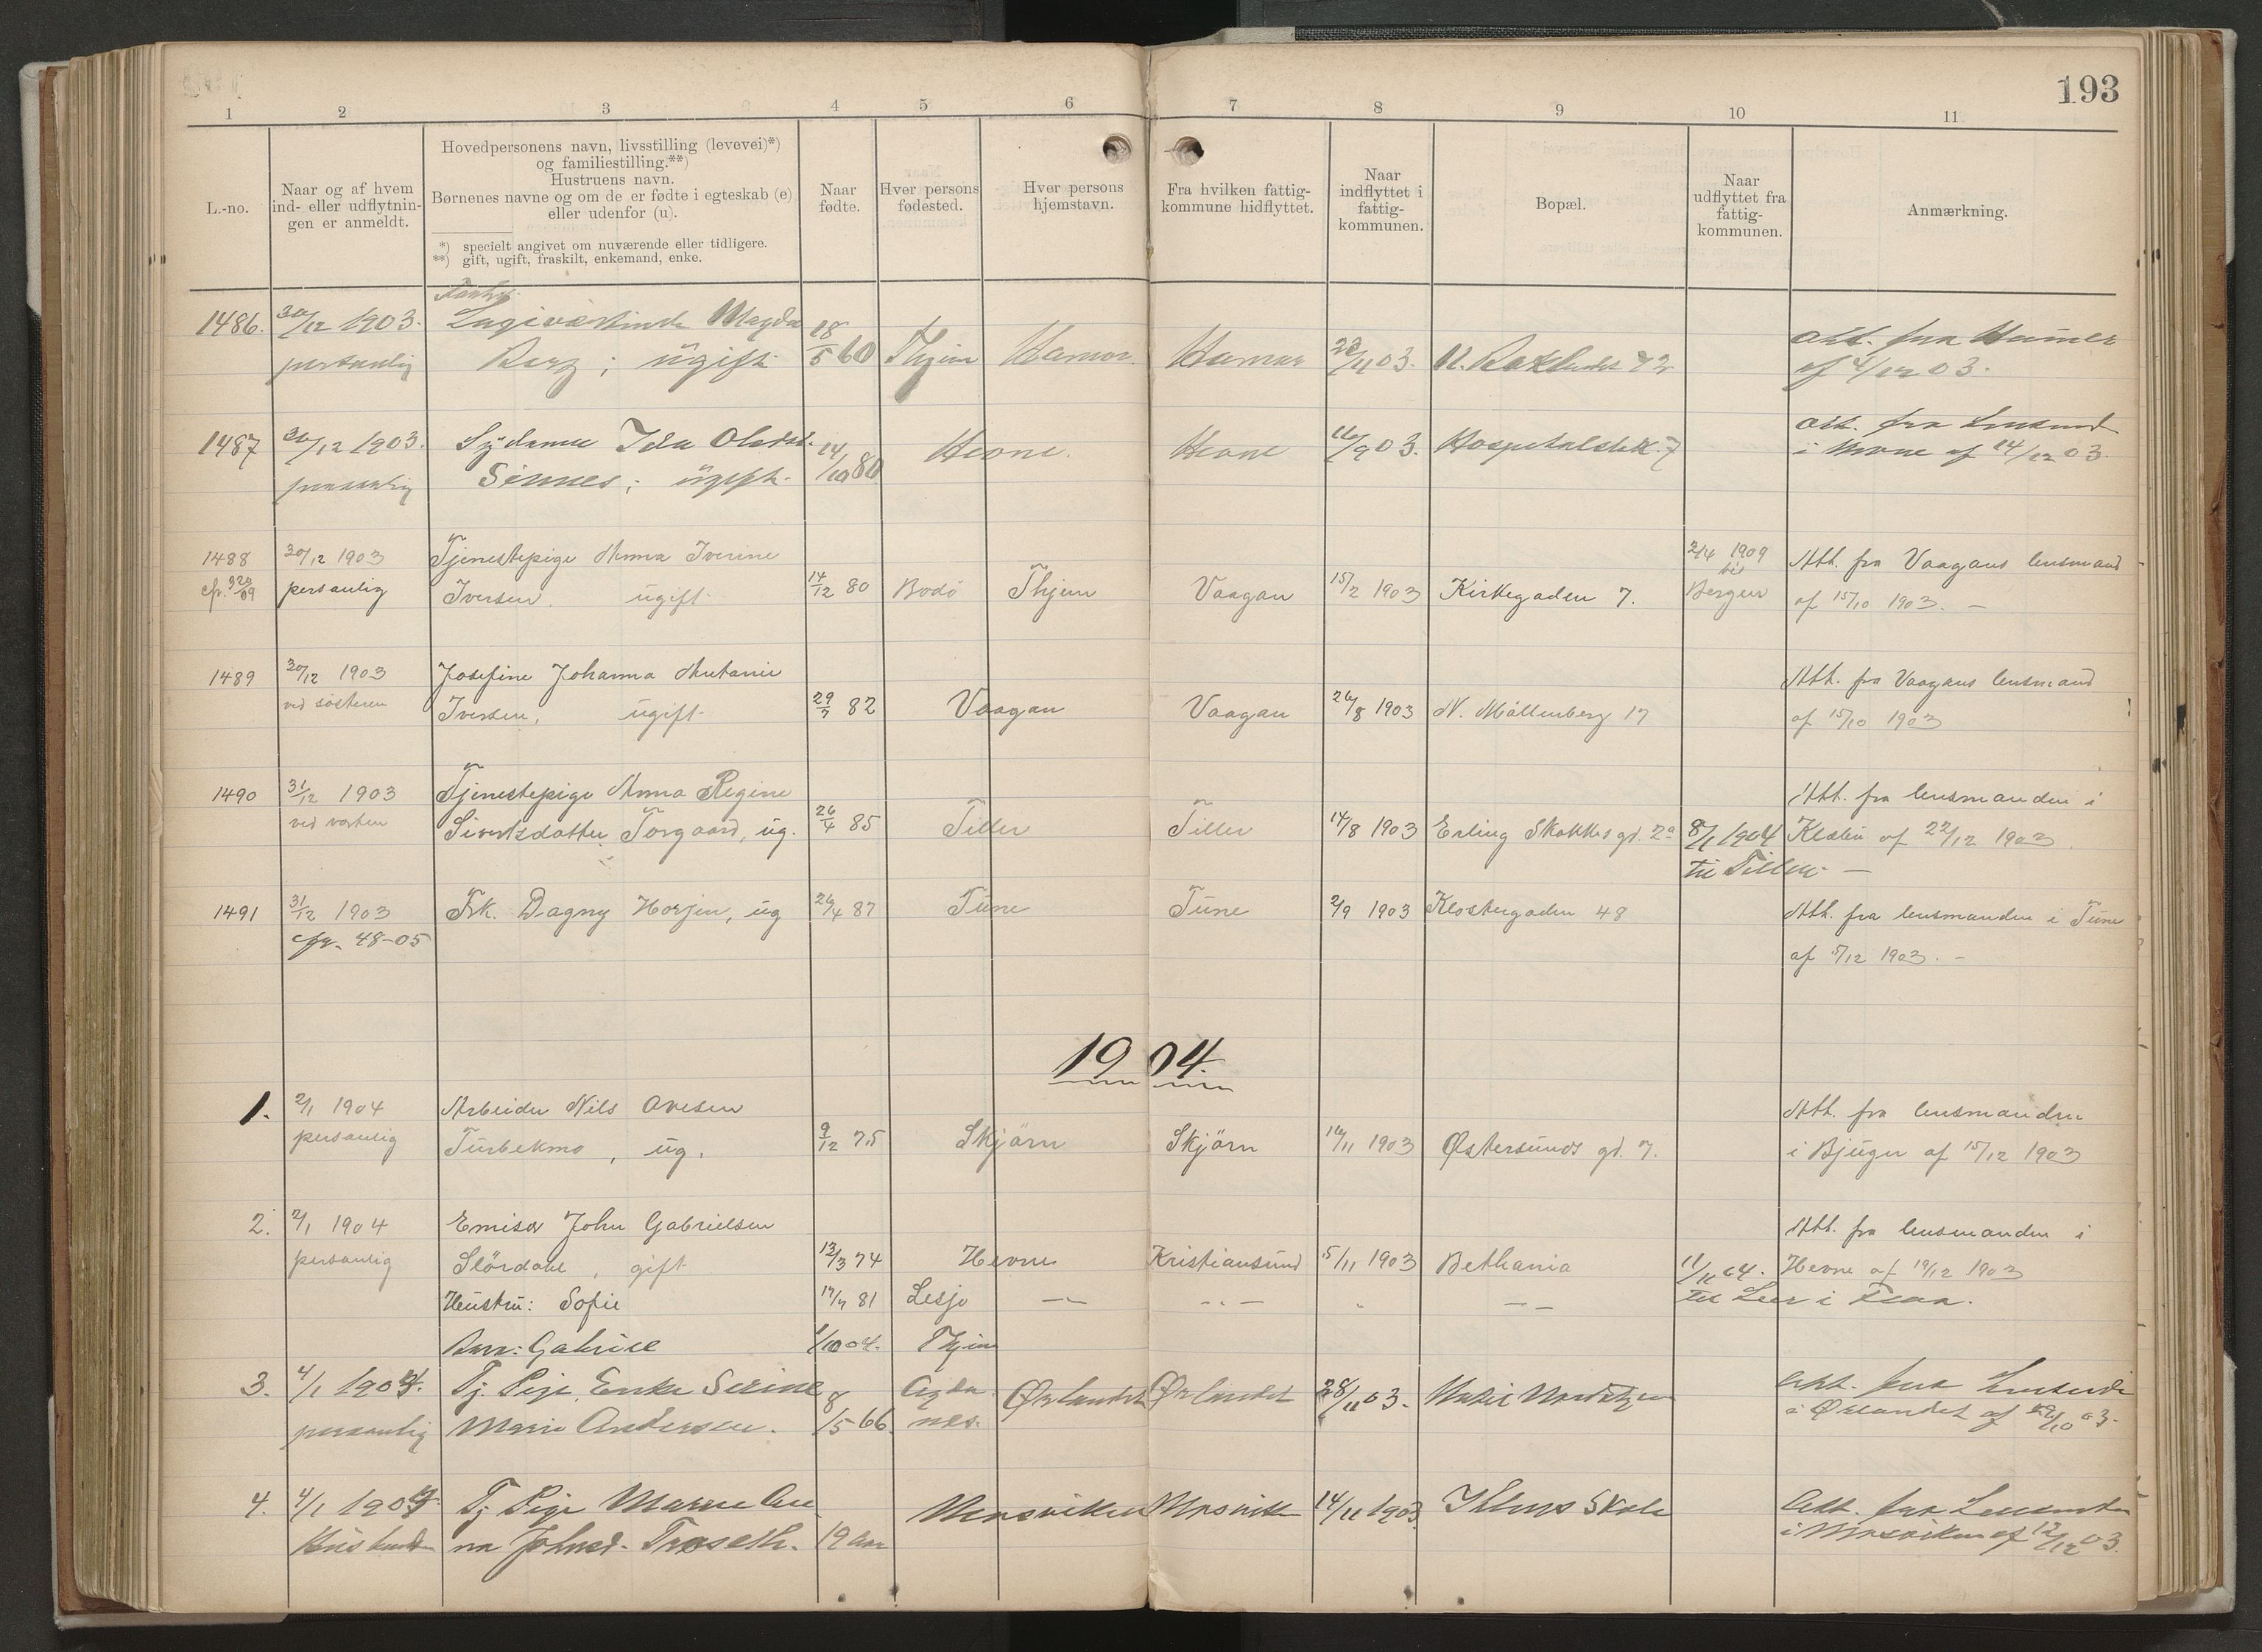 193
1 2 3 4 5 6 7 8 9 10 11
L.-no.
Naar og af hvem
ind- eller udflytnin-
gen er anmeldt.
Hovedpersonens navn, livsstilling (levevei)*)
og familiestilling.**)
Hustruens navn.
Børnenes navne og om de er fødte i egteskab (e)
eller udenfor (u).
*) specielt angivet om nuværende eller tidligere.
**) gift, ugift, fraskilt, enkemand, enke.
Naar
fødte.
Hver persons
fødested.
Hver persons
hjemstavn.
Fra hvilken fattig-
kommune hidflyttet.
Naar
indflyttet i
fattig-
kommunen.
Bopæl.
Naar
udflyttet fra
fattig-
kommunen.
Anmærkning.
1486. 30/12 1903. Magda Att. fra Hamar
personlig ; ugift 18/5 60 Thjem Hamar Hamar 03. 72 af 4/12 03.
1487 30/12 1903. Sydame Ida Olsdat. Att. fra Lensmd
personlig Sinnes; ugift. 14/10 80 Hevne. Hevne 16/9 03. Hospitalsløk. 7 i Hevne af 14/12 03.
1488 30/12 1903 Tjenestepige Anna Iverine 2/4 1909 Att. fra Vaagans lensmand
cfr. 320/09 personlig Iversen, ugift 14/12 80 Bodö Thjem Vaagan 15/2 1903 Kirkegaden 7. til Bergen af 15/10 1903. —
1489 30/12 1903 Josefine Johanna Antanie Att. fra Vaagans lensmand
ved søsteren Iversen, ugift 29/7 82 Vaagan Vaagan 26/8 1903 N. Möllenberg 17 af 15/10 1903
1490 31/12 1903 Tjenestepige Anna Regine Att. fra lensmanden i
ved værten Sivertsdatter Torgaard, ug. 26/4 85 Tiller Tiller 14/8 1903 Erling Skakkes gd. 2a 8/1 1904 Klæbu af 22/12 1903.
til Tiller —
1491 31/12 1903 Frk. Dagny Horjen, ug 26/4 87 Tune Tune 2/9 1903 Klostergaden 48 Att. fra lensmanden i Tune
cfr. 48-05 af 5/12 1903. —
1904.
1. 2/1 1904 Arbeider Nils Ovesen Att. fra lensmanden
personlig Turbekmo, ug. 9/12 75 Skjörn Skjörn 16/11 1903 Østersunds gd. 7. i Bjugn af 15/12 1903
2. 2/1 1904 Emisær John Gabrielsen Att. fra lensmanden i
personlig Slördahl, gift 13/3 74 Hevne Kristiansund 5/11 1903 Bethania 11/11 04. Hevne af 19/12 1903
Hustru: Sofie 17/7 81 Lesje — — — til Leer i Flaa.
Barn: Gabriel 1/10 04. Thjem
3. 4/1 1904. Tj. Pige, Enke Serine 8 Agda Ørlandet Ørlandet 28/11 03. Att. fra Lensmd
personlig Marie Andersen. /5 66. nes. i Ørlandet af 29/10 03.
4. 4/1 1904 Tj Pige Maren An Mosviken Mosviken 14/11 1903. Ihlens Skole Att. fra Lensmden
na Johnsd. Trøseth. 19 Aar i Mosviken af 12/12 03.